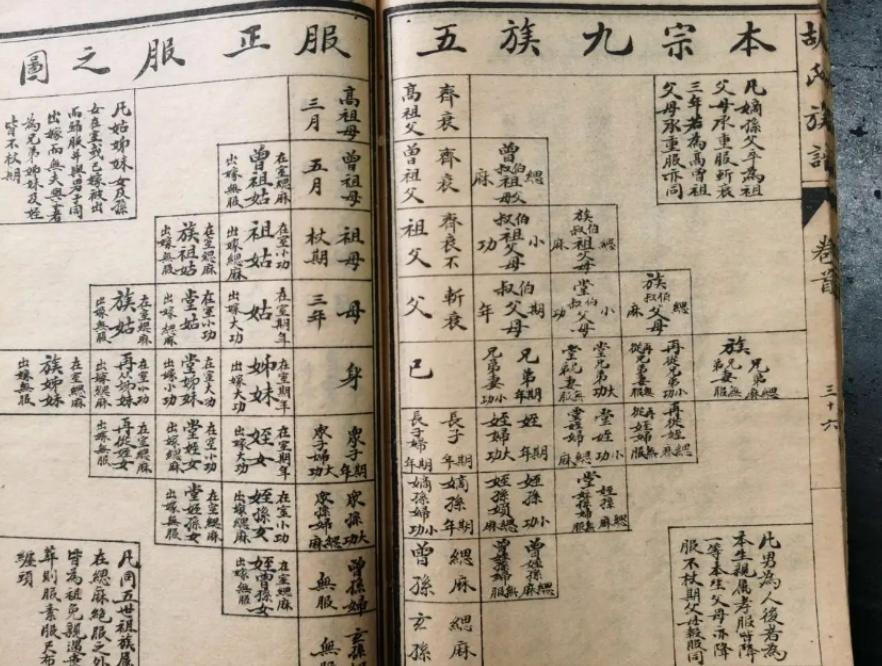 胡氏族譜
卷首
三十六
本宗九族五
服正服之圖
凡嫡孫父卒為祖
父母承重服斬衰
三年若為高曾祖
父母承重服亦同
此男為人後者為
本生親屬孝服皆降
一等本生父母亦降
服不杖期父母報服同
族
兄弟緦麻
兄弟妻無服
族
伯叔父母
緦麻
再從兄弟小功
再從兄弟妻無服
再從姪緦麻
再從姪婦無服
族
伯叔祖父母
緦麻
堂
伯叔父母
小功
堂兄弟大功
堂兄弟妻緦麻
堂姪小功
堂姪婦緦麻
堂
姪孫緦麻
姪孫婦無服
曾
伯叔祖父母
緦麻
伯叔祖父母
小功
伯叔父母
期年
兄弟期年
兄弟妻小功
姪期年
姪婦大功
姪孫小功
姪孫婦緦麻
曾姪孫緦麻
曾姪孫婦無服
齊衰
高祖父
齊衰
曾祖父
齊衰不
祖父
斬衰
父
己
長子期年
長子婦期年
嫡孫期年
嫡孫婦小功
緦麻
曾孫
緦麻
玄孫
高祖母
三月
曾祖母
五月
祖母
杖期
母
三年
身
眾子期年
眾子婦大功
眾孫大功
眾孫婦緦麻
曾孫婦
無服
玄孫婦
無服
在室緦麻
曾祖姑
出嫁無服
在室小功
祖姑
出嫁緦麻
在室期年
姑
出嫁大功
在室期年
姊妹
出嫁大功
在室期年
姪女
出嫁大功
在室小功
姪孫女
出嫁緦麻
在室緦麻
姪曾孫女
出嫁無服
在室緦麻
族祖姑
出嫁無服
在室小功
堂姑
出嫁緦麻
在室大功
堂姊妹
出嫁小功
在室小功
堂姪女
出嫁緦麻
在室緦麻
堂姪孫女
出嫁無服
在室緦麻
族姑
出嫁無服
在室小功
再從姊妹
出嫁緦麻
在室緦麻
再從姪女
出嫁無服
在室緦麻
族姊妹
出嫁無服
凡姑姊妹女及孫
女在室或已嫁被出
而歸服並與男子同
出嫁而無夫與子者
為兄弟姊妹及姪
皆不杖期
凡同五世祖族屬
在緦麻絕服之外
皆為袒免親遇喪
葬則服素服尺布
纏頭